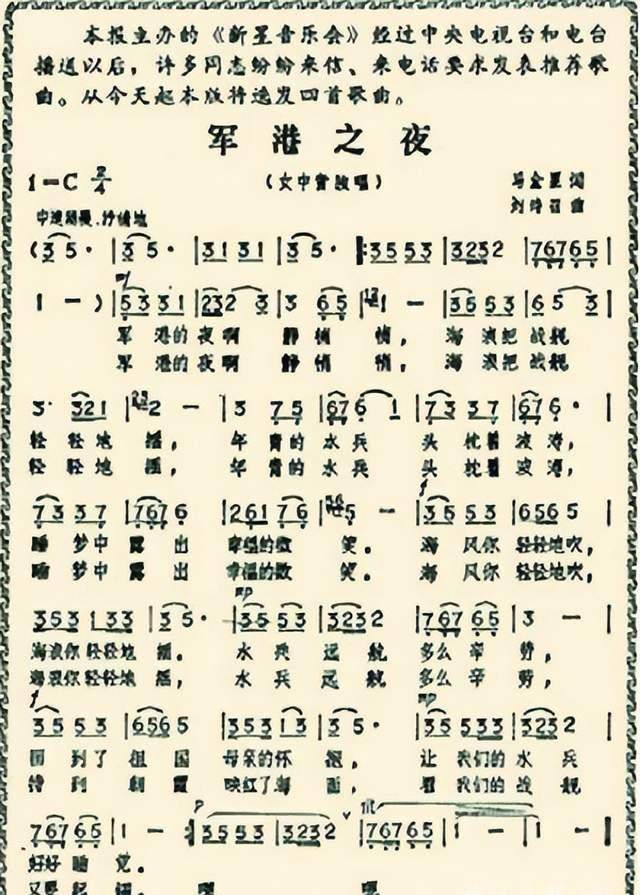 本报主办的《新星音乐会》经过中央电视台和电台
播送以后，许多同志纷纷来信、来电话要求发表推荐歌
曲。从今天起本版将选发四首歌曲。
军港之夜
1=C 2/4 （女中音独唱） 马金星 词
刘诗召 曲
中速稍慢、抒情地
( 3 5 · | 3 5 · | 3 1 3 1 | 3 5 · |: 3 5 5 3 | 3 2 3 2 | 7 6 7 6 5 |
1 - ) | 5 3 3 1 | 2 3 2 3 | 3 6 5 | 1 - | 3 5 5 3 | 6 5 3 |
军港的夜啊 静悄悄， 海浪把战舰
军港的夜啊 静悄悄， 海浪把战舰
3 · 3 2 1 | 2 - | 3 7 5 | 6 7 6 1 | 7 3 3 7 | 6 7 6 · |
轻轻地摇， 年青的水兵 头枕着波涛，
轻轻地摇， 年青的水兵 头枕着波涛，
7 3 3 7 | 7 6 7 6 | 2 6 1 7 6 | 5 - | 3 5 5 3 | 6 5 6 5 |
睡梦中露出 幸福的微笑。 海风你轻轻地吹，
睡梦中露出 幸福的微笑。 海风你轻轻地吹，
3 5 3 1 3 3 | 3 5 · | 3 5 5 3 | 3 2 3 2 | 7 6 7 6 5 | 3 - |
海浪你轻轻地摇。 水兵远航 多么辛劳，
海浪你轻轻地摇， 水兵远航 多么辛劳，
f mp
3 5 5 3 | 6 5 6 5 | 3 5 3 1 3 | 3 5 · | 3 5 5 3 3 | 3 2 3 2 |
回到了祖国 母亲的怀抱， 让我们的水兵
待到朝霞 映红了海面， 看我们的战舰
7 6 7 6 5 | 1 - :| 3 5 5 3 | 3 2 3 2 | 7 6 7 6 5 | 1 - | 1 - |
好好睡觉。
又要起锚 嗯 嗯